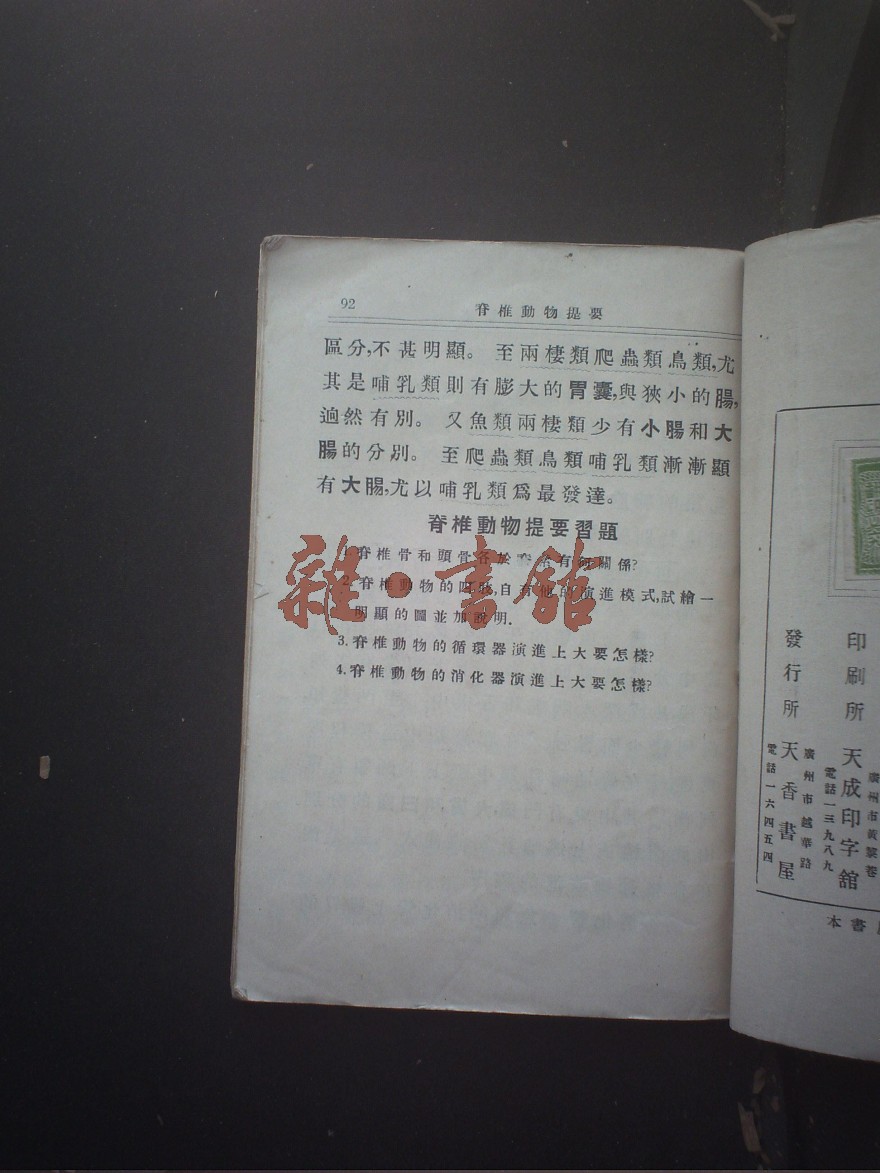 92
脊椎動物提要
區分,不甚明顯。 至兩棲類爬蟲類鳥類,尤
其是哺乳類則有膨大的胃囊,與狹小的腸,
逈然有別。 又魚類兩棲類少有小腸和大
腸的分別。 至爬蟲類鳥類哺乳類漸漸顯
有大腸,尤以哺乳類爲最發達。
脊椎動物提要習題
1.脊椎骨和頭骨各於有何關係?
2.脊椎動物的,自有他的演進模式,試繪一
明顯的圖並加說明.
3.脊椎動物的循環器演進上大要怎樣?
4.脊椎動物的消化器演進上大要怎樣?
雜·書館
印刷所 天成印字舘
廣州市
電話一三九八九
發行所 天香書屋
廣州市越華路
電話一六四五四
本書